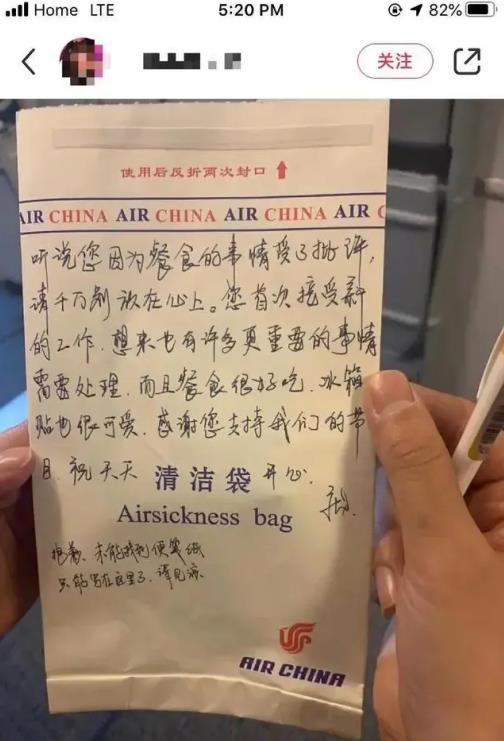 Home LTE
5:20 PM
82%
关注
使用后反折两次封口
AIR CHINA AIR CHINA AIR CHINA AIR C
听说您因为餐食的事情受了批评,
请千万别放在心上。您首次接受新
的工作,想来也有许多更重要的事情
需要处理,而且餐食很好吃,冰箱
贴也很可爱,感谢您支持我们的节
目,祝天天开心.
清洁袋
Airsickness bag
抱歉,未能找到便笺纸
只能写在这里了,请见谅.
AIR CHINA